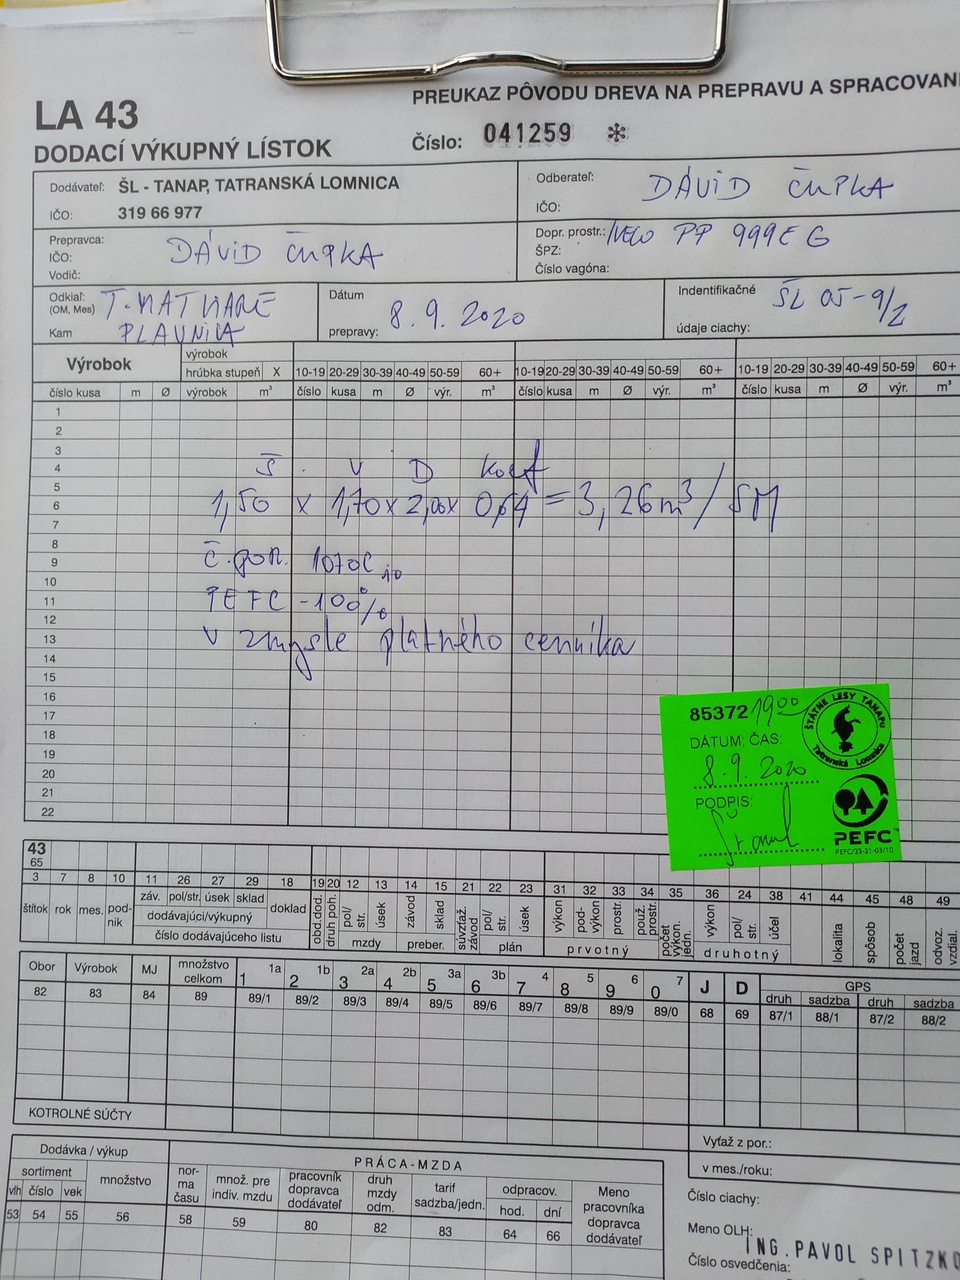 PREUKAZ PÔVODU DREVA NA PREPRAVU A SPRACOVANI
LA 43
DODACÍ VÝKUPNÝ LÍSTOK
Číslo: 041259 *
Dodávateľ: ŠL - TANAP, TATRANSKÁ LOMNICA
IČO: 319 66 977
Odberateľ: DÁVID ČUPKA
IČO:
Prepravca: DÁVID ČUPKA
IČO:
Vodič:
Dopr. prostr.: IVECO PP 999EG
ŠPZ:
Číslo vagóna:
Odkiaľ: T. MATLIARE
(OM, Mes)
Kam PLAVNICA
Dátum
prepravy: 8. 9. 2020
Indentifikačné ŠL 05-9/2
údaje ciachy:
Výrobok
výrobok
hrúbka stupeň X 10-19 20-29 30-39 40-49 50-59 60+ 10-19 20-29 30-39 40-49 50-59 60+ 10-19 20-29 30-39 40-49 50-59 60+
číslo kusa m Ø výrobok m³ číslo kusa m Ø výr. m³ číslo kusa m Ø výr. m³ číslo kusa m Ø výr. m³
1
2
3
4 Š V D Koef
5
6 1,50 x 1,70 x 2,00 x 0,64 = 3,26 m³ / SM
7
8
9 č. por. 1070C
10
11 PEFC - 100%
12
13 V zmysle platného cenníka
14
15
16
17
18
19
20
21
22
85372 19 00
DÁTUM; ČAS:
8.9. 2020
PODPIS:
ŠTÁTNE LESY TANAPU
Tatranská Lomnica
PEFC
PEFC/23-21-03/10
43
65
3 7 8 10 11 26 27 29 18 19 20 12 13 14 15 21 22 23 31 32 33 34 35 36 24 38 41 44 45 48 49
štítok rok mes. pod-nik záv. pol/str. úsek sklad doklad obd.dod. druh poh. pol/str. úsek závod sklad súvzťaž. závod pol/str. úsek výkon pod-výkon prostr. použ. prostr. počet výkon. jedn. výkon pol/str. účel lokalita spôsob počet jazd odvoz. vzdial.
dodávajúci/výkupný
číslo dodávajúceho listu mzdy preber. plán prvotný druhotný
Obor Výrobok MJ množstvo celkom 1 1a 2 1b 3 2a 4 2b 5 3a 6 3b 7 4 8 5 9 6 0 7 J D GPS
druh sadzba druh sadzba
82 83 84 89 89/1 89/2 89/3 89/4 89/5 89/6 89/7 89/8 89/9 89/0 68 69 87/1 88/1 87/2 88/2
KOTROLNÉ SÚČTY
Vyťaž z por.:
v mes./roku:
Dodávka / výkup
PRÁCA-MZDA
sortiment množstvo nor-ma času množ. pre indiv. mzdu pracovník dopravca dodávateľ druh mzdy odm. tarif sadzba/jedn. odpracov. Meno pracovníka dopravca dodávateľ
vlh číslo vek hod. dní
53 54 55 56 58 59 80 82 83 64 66
Číslo ciachy:
Meno OLH: ING. PAVOL SPITZKO
Číslo osvedčenia: